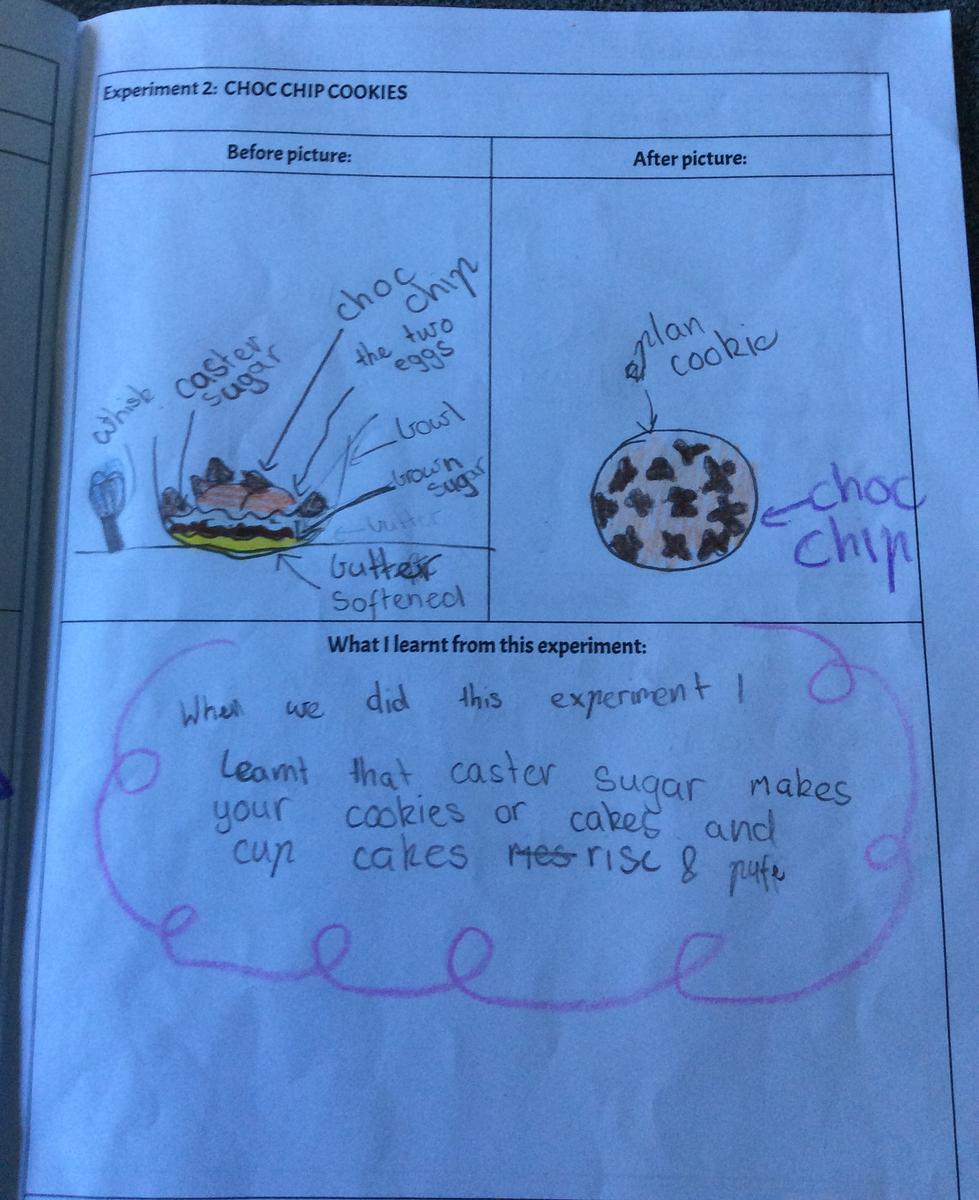 Experiment 2: CHOC CHIP COOKIES
Before picture:
After picture:
choc
chip
the two
eggs
caster
sugar
whisk
bowl
brown
sugar
butter
butter
softened
plan
cookie
choc
chip
What I learnt from this experiment:
When we did this experiment I
learnt that caster sugar makes
your cookies or cakes and
cup cakes rise & puff